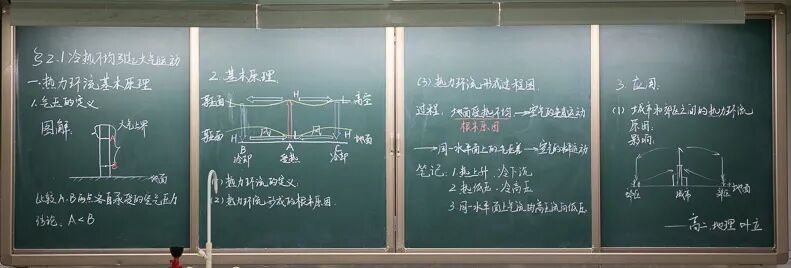 §2.1 冷热不均引起大气运动
一.热力环流基本原理
1.气压的定义
图解:
大气上界
地面
比较A、B两点各自承受的空气压力
结论: A<B
2.基本原理
H
等压面
高空
等压面
风
风
H
H
地面
B
A
C
冷却
受热
冷却
(1)热力环流的定义
(2)热力环流形成的根本原因
(3)热力环流形成过程图
过程: 地面冷热不均→空气的垂直运动
根本原因
→同一水平面上的气压差→空气的水平运动
笔记: 1.热上升、冷下沉
2.热低压、冷高压
3.同一水平面上气流由高压流向低压
3.应用:
(1)城市和郊区之间的热力环流
原因:
影响:
郊区
城市
郊区
地面
——高二地理 叶立